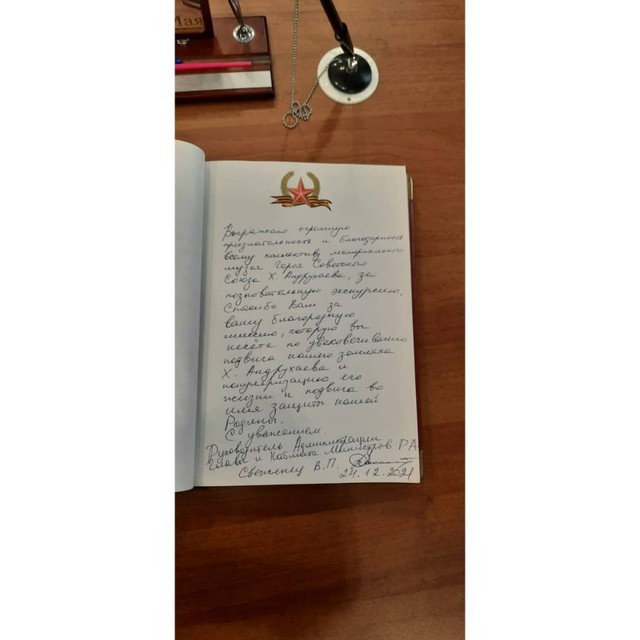 Мая
Выражаю огромную
признательность и благодарность
всему коллективу мемориального
музея Героя Советского
Союза Х. Андрухаева, за
познавательную экскурсию.
Спасибо Вам за
вашу благородную
миссию, которую вы
несёте по увековечиванию
подвига нашего земляка
Х. Андрухаева и
популяризацию его
жизни и подвига во
имя защиты нашей
Родины.
С уважением.
Руководитель Администрации
Главы и Кабмина Министров РА
Свеженец В.П.
24.12.2021